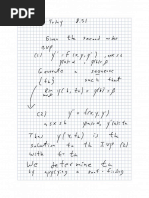 Friday 8:31
Given the second order
BVP (1) y'' = f(x,y,y'), a≤x≤b
y(a)=α, y(b)=β
Generate a sequence
{tₖ} such that
lim y(b,tₖ) = y(b) = β
(2) y'' = f(x,y,y')
a≤x≤b y(a)=α, y'(a)=t
That y(x,tₖ) is the
solution to the IVP (2)
with t=tₖ
We determine tₖ
by applying a root-finding